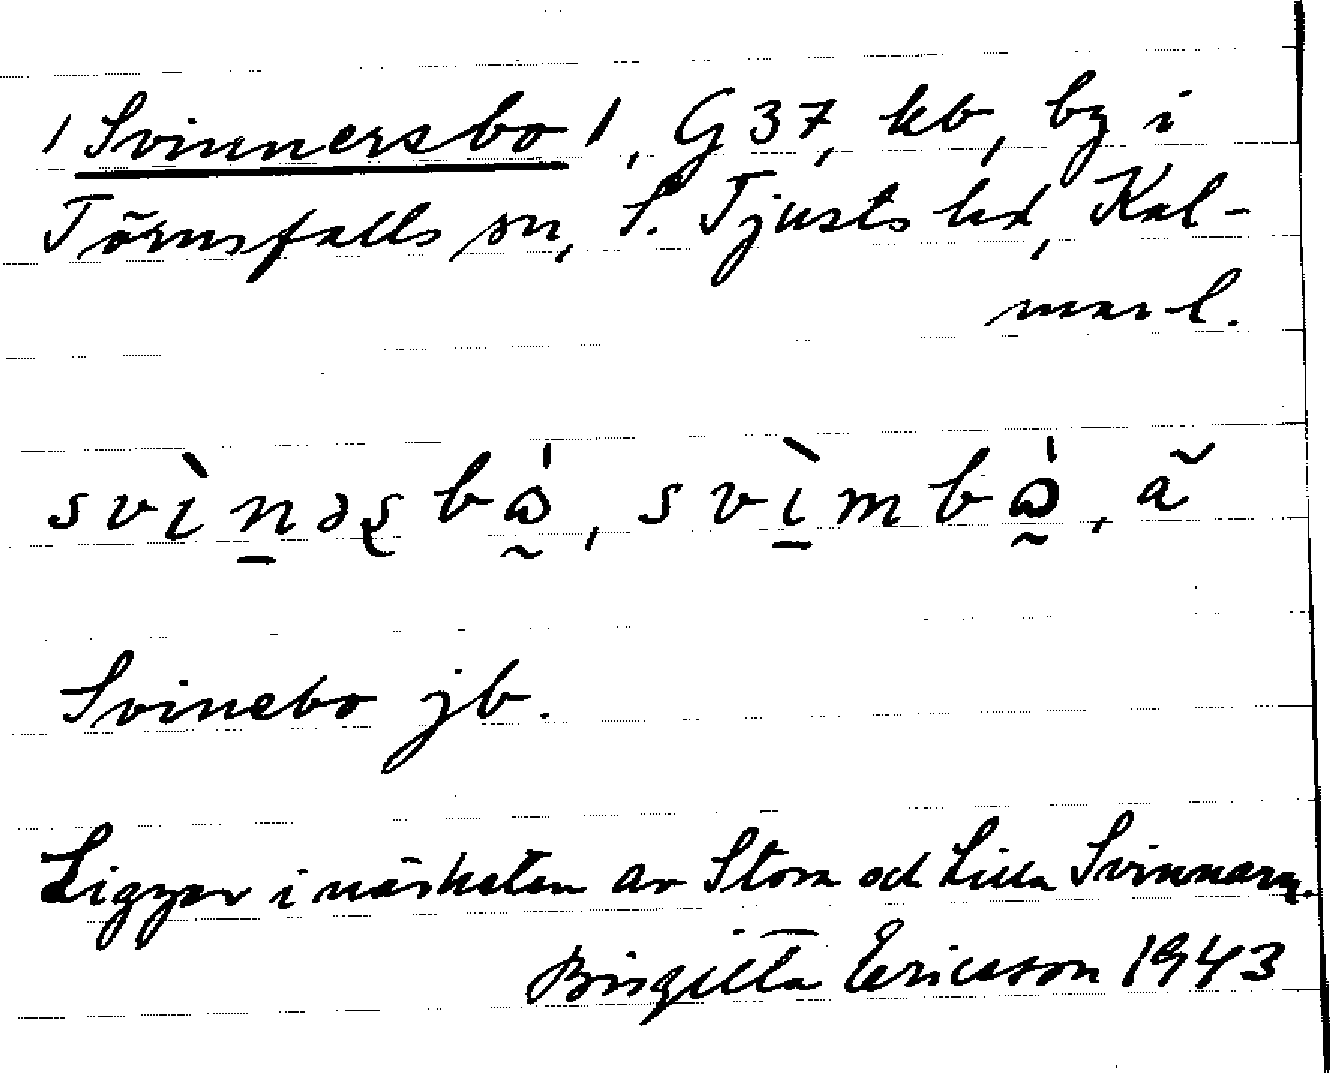 /Svinnersbo/, G 37, kb, by i
Törnsfalls sn, S. Tjusts hd, Kal-
mar l.
svìnəsbὼ, svìmbὼ, ă
Svinebo jb.
Ligger i närheten av Stora och Lilla Svinnarn.
Birgitta Ericsson 1943